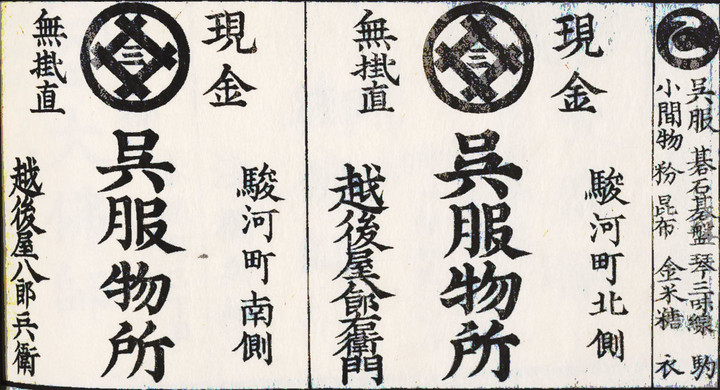 呉服 碁石碁盤 琴三味線 駒
小間物 粉 昆布 金米糖 衣
現金
駿河町北側
三
呉服物所
無掛直
越後屋八郎右衛門
現金
駿河町南側
三
呉服物所
無掛直
越後屋八郎兵衛